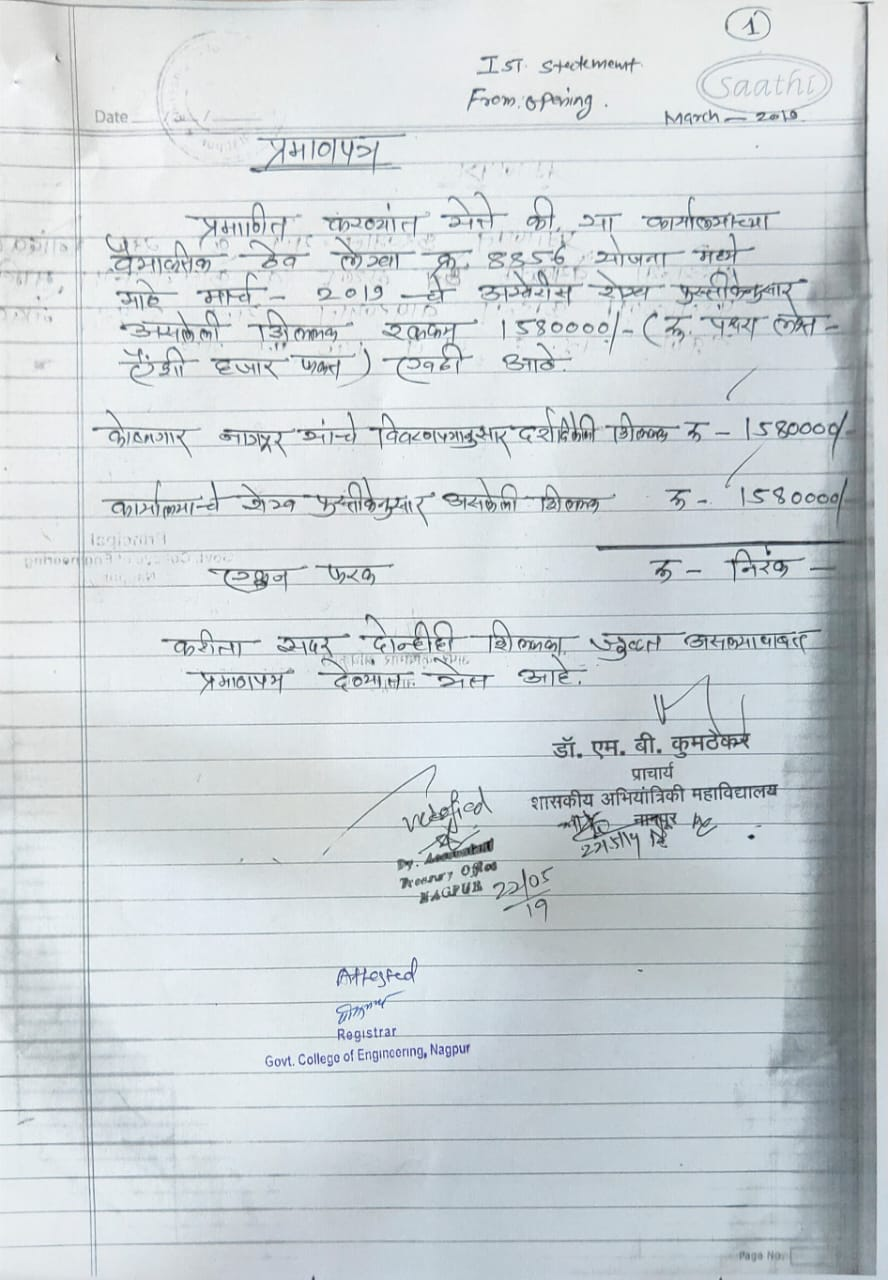 1
Ist. Statement
From opening.
Saathi
Date
March - 2019
प्रमाणपत्र
प्रमाणित करण्यांत येते की, या कार्यालयाच्या
ठेव लेखा क्र. 8356 योजना मध्ये
माहे मार्च - 2019 चे अखेरीस रोख पुस्तीकेनुसार
असलेली शिल्लक रक्कम 1580000/- (रु. पंधरा लक्ष -
ऐंशी हजार फक्त) एवढी आहे.
कोषागार नागपूर यांचे विवरणपत्रानुसार दर्शविलेली शिल्लक रु - 1580000/-
कार्यालयाचे रोख पुस्तीकेनुसार असलेली शिल्लक रु - 1580000/-
एकुन फरक रु - निरंक -
करीता सदर दोन्हीही शिल्लका जुळत असल्याबाबत
प्रमाणपत्र देण्यात येत आहे.
डॉ. एम. बी. कुमठेकर
प्राचार्य
शासकीय अभियांत्रिकी महाविद्यालय
नागपूर
Verified
Dy. Accountant
Treasury Office
NAGPUR
22/05
19
Attested
Registrar
Govt. College of Engineering, Nagpur
Page No.